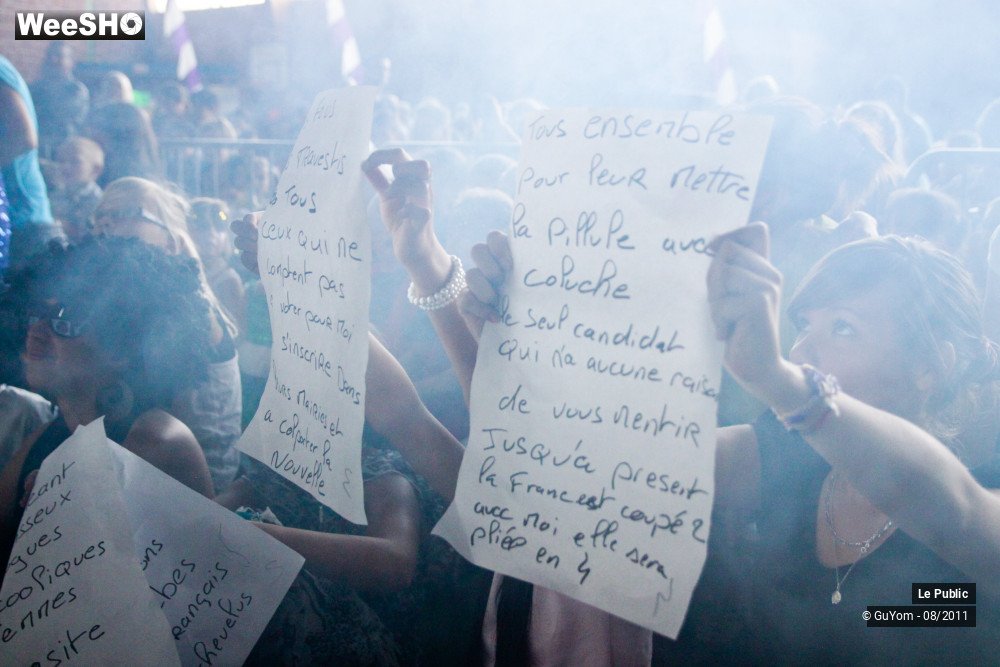 WeeSHO
TOUS ENSEMBLE
POUR LEUR METTRE
LA PILLULE avec
COLUCHE
le seul candidat
QUI N'A AUCUNE RAISO
de vous MENTIR
JUSQU'À présent
la France est coupé 2
avec moi elle sera
pliée en 4
TOUS
ceux qui ne
comptent pas
voter pour moi
s'inscrire DANS
leurs MAIRIES et
a colporter la
NOUVELLE
gues
cooliques
emmes
ons
bes
Français
chevelus
Le Public
© GuYom - 08/2011